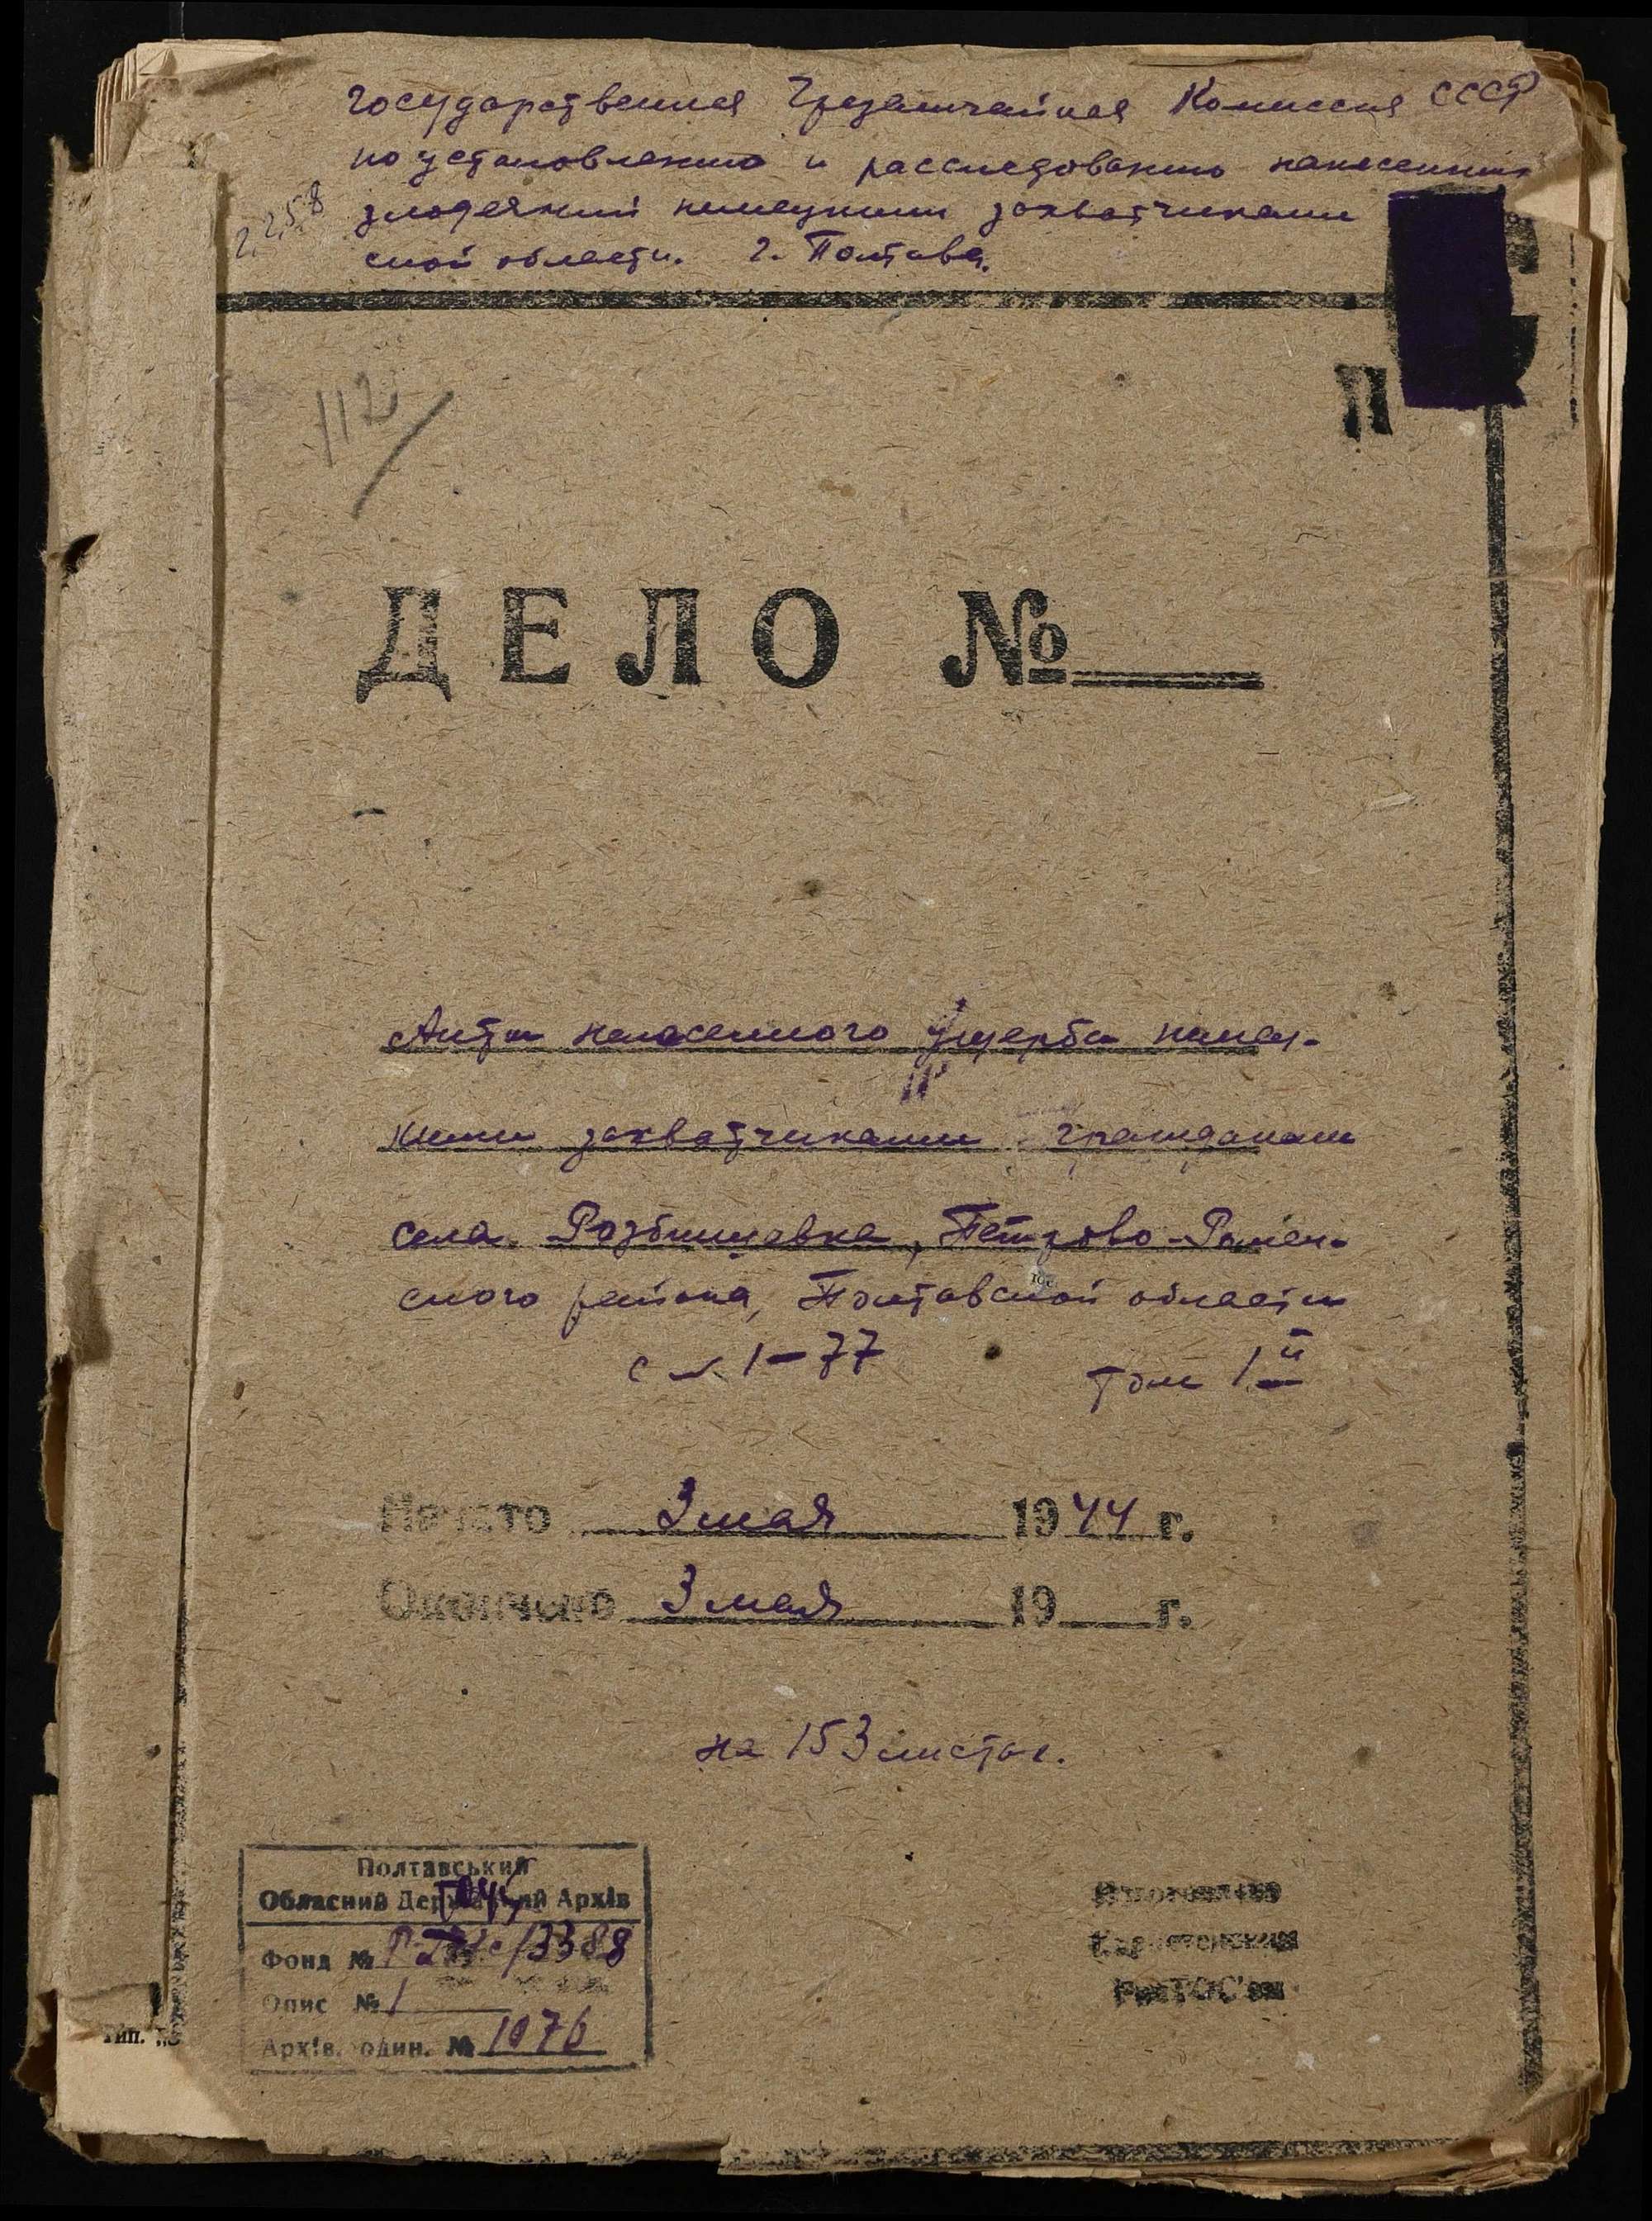 Государственная Чрезвычайная Комиссия СССР
по установлению и расследованию нанесенных
злодеяний немецкими захватчиками
ской области. г. Полтава.
2,258
112
П
ДЕЛО №
Акты нанесенного ущерба немец-
кими захватчиками гражданам
села Розбишевка, Петрово-Ромен-
ского района, Полтавской области
с № 1-77 том I й
Начато 3 мая 1944 г.
Окончено 3 мая 19 г.
на 153 листах.
Полтавський
Обласний Державний Архів
Фонд № 3388
Опис № 1
Архів. один. № 1076
Тип.